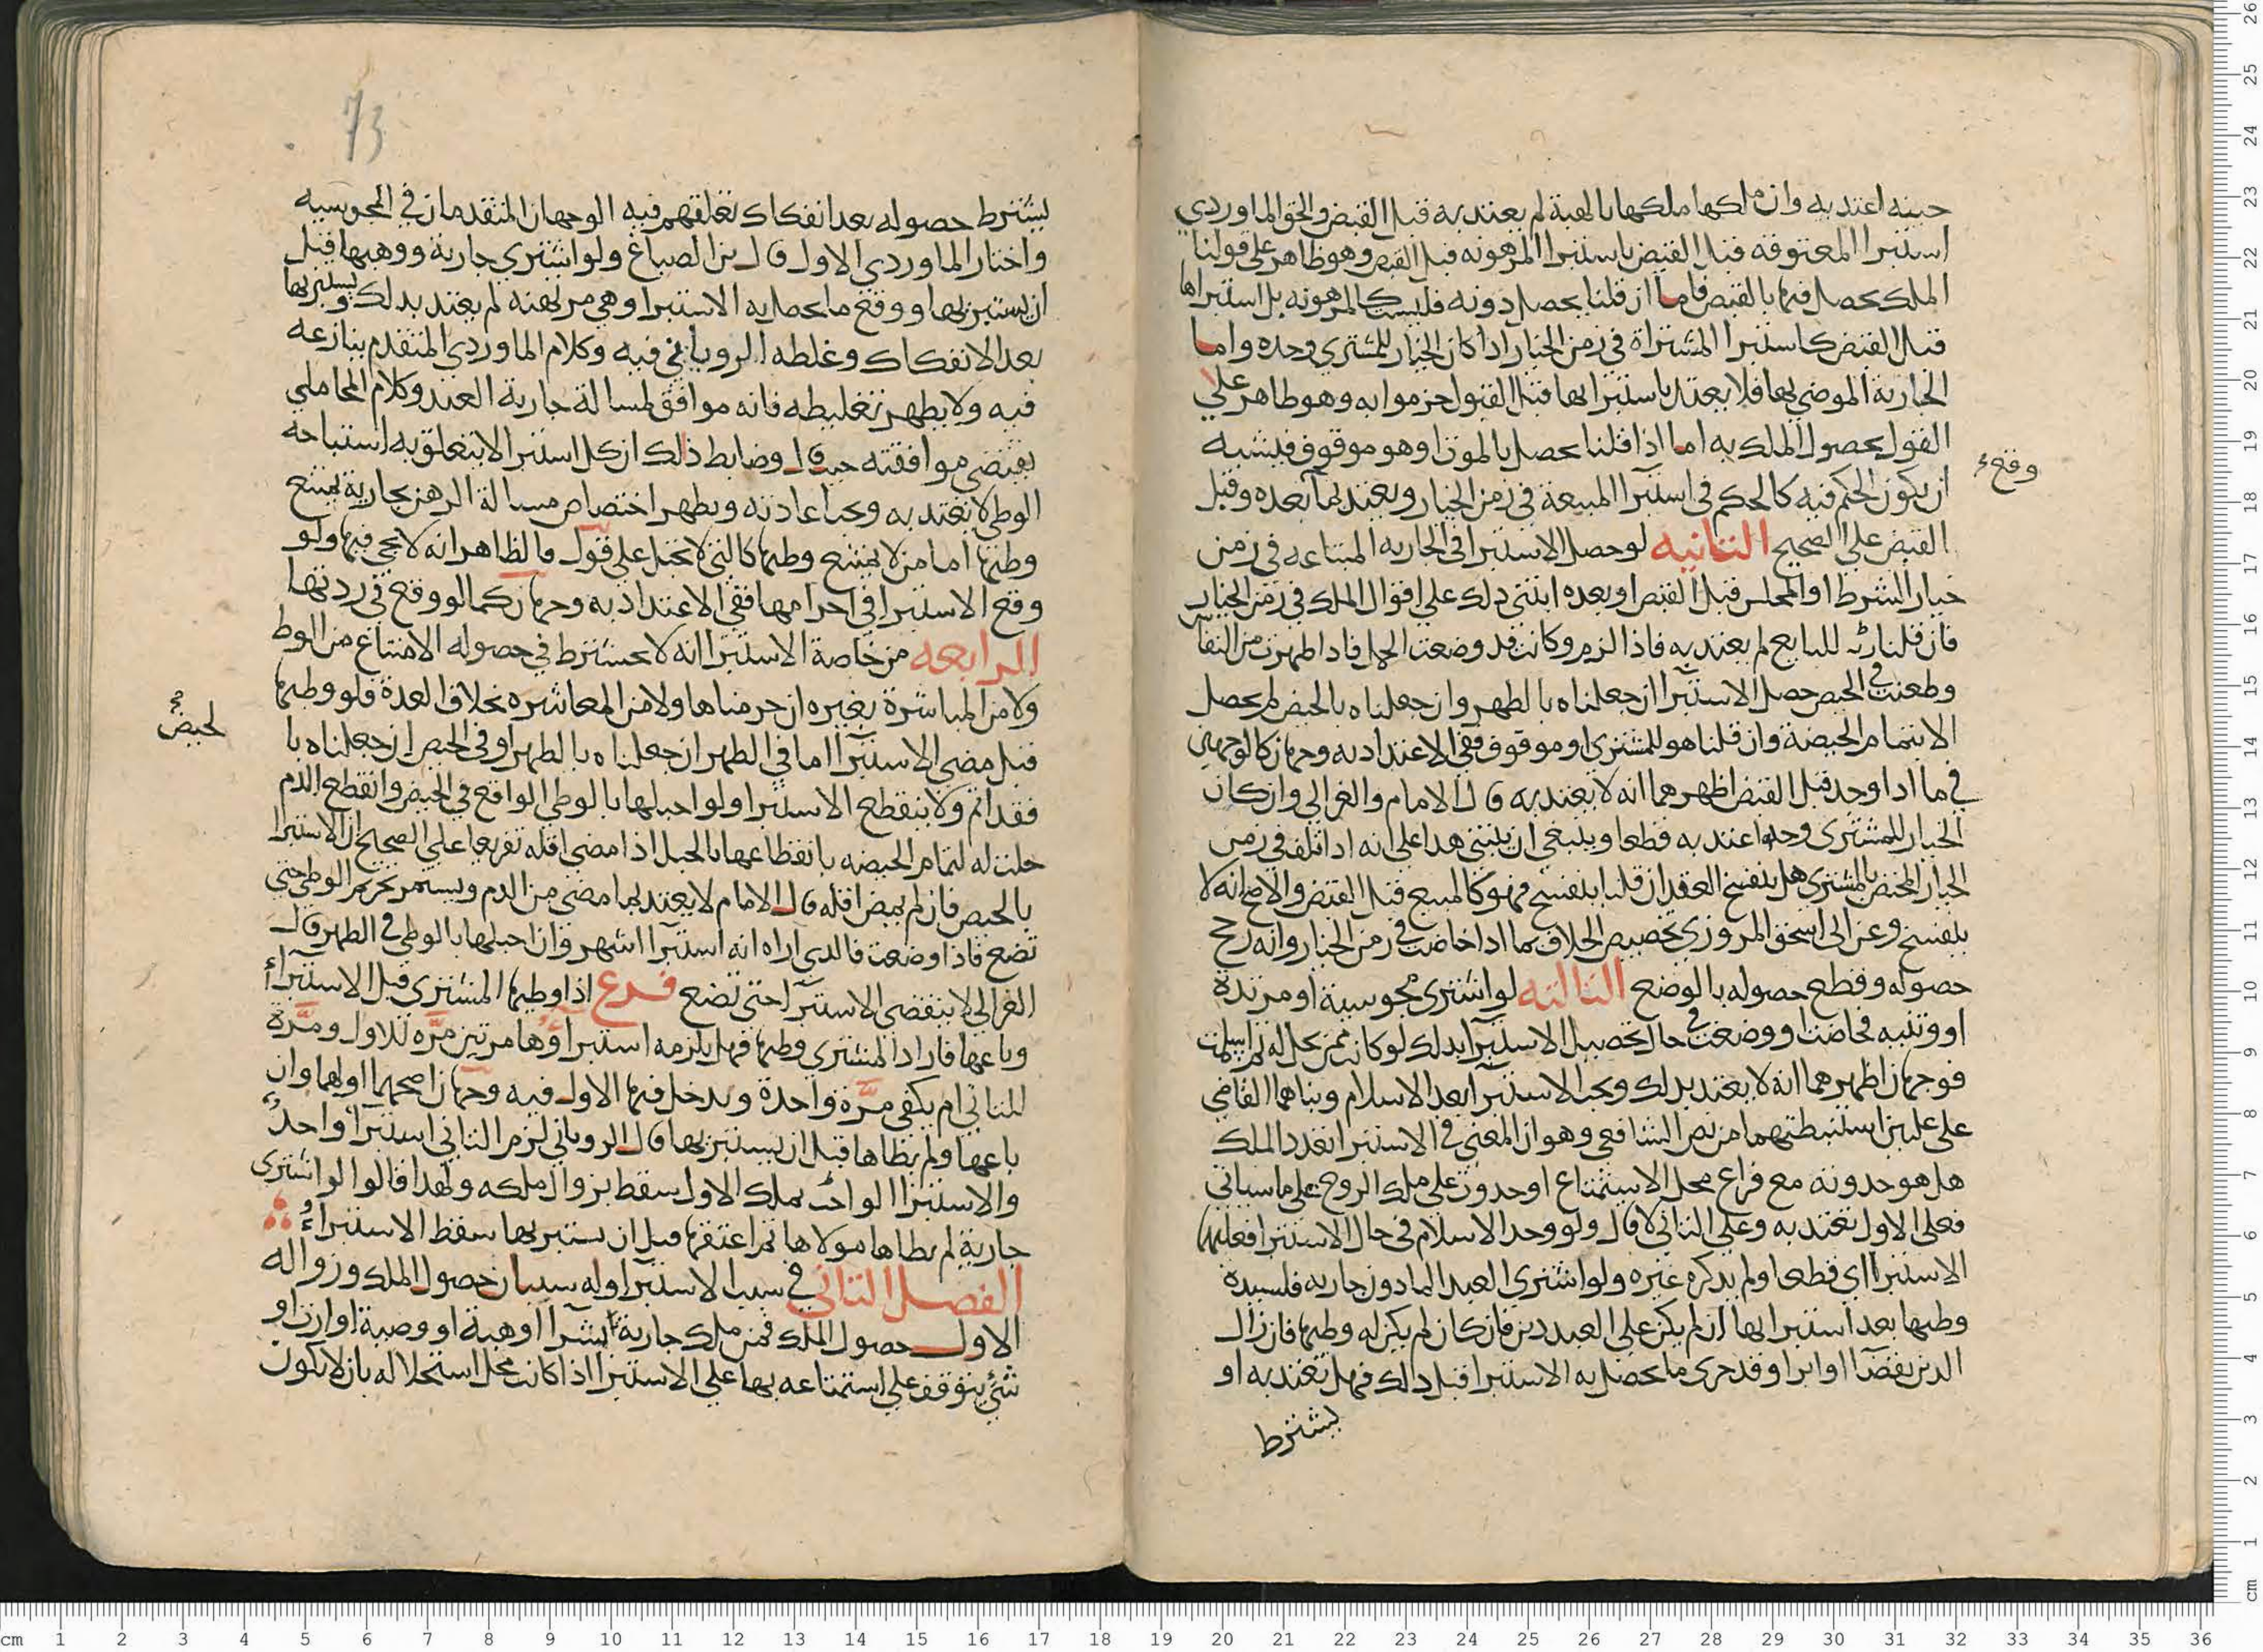 حينه اعتد به وان ملكها ملكها بالهبة لم يعتد به قبل القبض والحق الماوردي
استبرا المعتوقه قبل القبض باستبرا المرهونه قبل القبض وهو ظاهر على قولنا
الملك يحصل فيها بالقبض فاما ان قلنا يحصل دونه فليست كالمرهونه بل استبراها
قبل القبض كاستبرا المشتراة في زمن الخيار اذا كان الخيار للمشتري وحده واما
الجارية الموصي بها فلا يعتد باستبرايها قبل القبول جزموا به وهو ظاهر علي
القول بحصول الملك به اما اذا قلنا يحصل بالموت او هو موقوف فيشبه
ان يكون الحكم فيه كالحكم في استبرا المبيعة في زمن الخيار ويعتد بما بعده وقبل
وقع
القبض علي الصحيح الثانيه لو حصل الاستبرا في الجاريه المبتاعه في زمن
خيار الشرط او المجلس قبل القبض او بعده ابتنى ذلك علي اقوال الملك في زمن الخيار
فان قلنا بانه للبايع لم يعتد به فاذا لزم وكانت قد وضعت الحمل فاذا طهرت من النفاس
وطعنت في الحيض حصل الاستبرا ان جعلناه بالطهر وان جعلناه بالحيض لم يحصل
الا بتمام الحيضة وان قلنا هو للمشتري او موقوف ففي الاعتداد به وجهان كالوجهين
في ما اذا وجد قبل القبض اظهرهما انه لا يعتد به قال الامام والغزالي وان كان
الخيار للمشتري وحده اعتد به قطعا وينبغي ان يبتنى هذا علي انه اذا تلف في زمن
الخيار المختص بالمشتري هل ينفسخ العقد ان قلنا ينفسخ فهو كالمبيع قبل القبض والاصح انه لا
ينفسخ وعن ابي اسحق المروزي تخصيص الخلاف بما اذا حاضت في زمن الخيار وانه رجح
حصوله وقطع حصوله بالوضع الثالثه لو اشترى مجوسية او مرتدة
او وثنيه فحاضت او وضعت في حال تحصيل الاستبرا بذلك لو كانت ممن تحل له ثم اسلمت
فوجهان اظهرهما انه لا يعتد بذلك ويجب الاستبرا بعد الاسلام وبناهما القاضي
على علتين استنبطتهما من نص الشافعي وهو ان المعنى في الاستبرا تعدد الملك
هل هو حدوثه مع فراغ محل الاستمتاع او حدوث على ملك الزوج على ما سياتي
فعلى الاول تعتد به وعلي الثاني لا قال ولو وجد الاسلام في حال الاستبرا فعليها
الاستبرا اي قطعا ولم يذكره غيره ولو اشترى العبد الماذون جاريه فلسيده
وطيها بعد استبرايها ان لم يكن على العبد دين فان كان لم يكن له وطيها فان زال
الدين بقضا او ابرا وقد جرى ما يحصل به الاستبرا قبل ذلك فهل تعتد به او
يشترط
73
يشترط حصوله بعد انفكاك تعلقهم فيه الوجهان المتقدمان في المجوسيه
واختار الماوردي الاول قال بن الصباغ ولو اشترى جارية ووهبها قبل
ان يستبريها ووقع ما يحصل به الاستبرا وهي مرتهنه لم يعتد بذلك ويستبريها
بعد الانفكاك وغلطه الروياني فيه وكلام الماوردي المتقدم ينازعه
فيه ولا يظهر تغليطه فانه موافق لمسالة جارية العبد وكلام المحاملي
يقتضي موافقته حيث قال وضابط ذلك ان كل استبرا لا يتعلق به استباحه
الوطي لا تعتد به ويجب اعادته ويظهر اختصاص مسالة الرهن بجارية يمتنع
وطئها اما من لا يمتنع وطئها كالتي لا تحبل على قول فالظاهر انه لا يجي فيها ولو
وقع الاستبرا في احرامها ففي الاعتداد به وجهان كما لو وقع في ردتها
الرابعه من خاصة الاستبرا انه لا يشترط في حصوله الامتناع من الوط
ولا من المباشرة بغيره ان حرمناها ولا من المعاشره بخلاف العدة فلو وطيها
قبل مضي الاستبرا اما في الطهر ان جعلناه بالطهر او في الحيض ان جعلناه با
لحيض صح
فقد اثم ولا ينقطع الاستبرا ولو احبلها بالوطي الواقع في الحيض وانقطع الدم
حلت له لتمام الحيضه بانقطاعها بالحبل اذا مضي اقله تفريعا علي الصحيح ان الاستبرا
بالحيض فان لم يمض اقله قال الامام لا يعتد بما مضي من الدم ويستمر تحريم الوطي حتي
تضع فاذا وضعت فالذي اراه انه استبرا اشهر وان احبلها بالوطي في الطهر قال
الغزالي لا ينقضي الاستبرا حتى تضع فرع اذا وطيها المشتري قبل الاستبراء
وباعها فاراد المشتري وطيها فهل يلزمه استبراؤها مرتين مره للاول ومرة
للثاني ام يكفي مرة واحدة ويدخل فيها الاول فيه وجهان اصحهما اولهما وان
باعها ولم يطاها قبل ان يستبريها قال الروياني لزم الثاني استبراء واحد
والاستبرا الواجب بملك الاول سقط بزوال ملكه ولهذا قالوا لو اشترى
جارية لم يطاها مولاها ثم اعتقها قبل ان يستبريها سقط الاستبراء
الفصل الثاني في سبب الاستبرا وله سببان حصول الملك وزواله
الاول حصول الملك فمن ملك جارية بشرا او هبة او وصية او ارث او
شي يتوقف علي استمتاعه بها علي الاستبرا اذا كانت محل استحلاله بان لا يكون